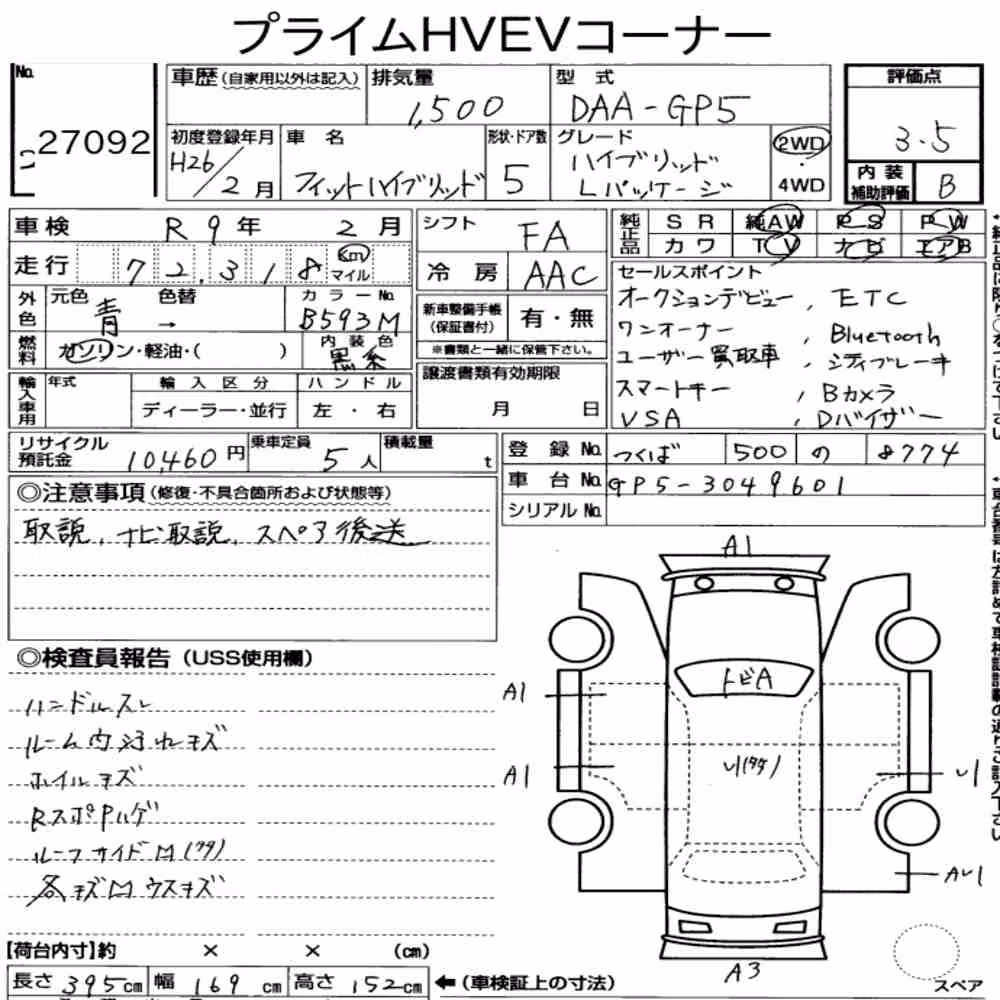 プライムHVEVコーナー
No. 27092
車歴(自家用以外は記入) 排気量 1,500 型式 DAA-GP5 評価点 3.5
初度登録年月 H26/2月 車名 フィットハイブリッド 形状・ドア数 5 グレード ハイブリッド Lパッケージ 2WD・4WD 内装補助評価 B
車検 R9年 2月 シフト FA 純正品 SR 純AW PS PW
カワ TV ナビ エアB
走行 72,318 Km マイル 冷房 AAC
外色 元色 青 色替 → カラーNo. B593M
燃料 ガソリン・軽油・( ) 内装色 黒系
新車整備手帳(保証書付) 有・無
※書類と一緒に保管下さい。
セールスポイント
オークションデビュー, ETC
ワンオーナー , Bluetooth
ユーザー買取車 , シティブレーキ
スマートキー , Bカメラ
VSA , Dバイザー
輸入車用 年式 輸入区分 ハンドル
ディーラー・並行 左・右
譲渡書類有効期限
月 日
リサイクル預託金 10,460円 乗車定員 5人 積載量 t
登録No. つくば 500 の 8774
車台No. GP5-3049601
シリアルNo.
◎注意事項(修復・不具合箇所および状態等)
取説, ナビ取説, スペア後送
◎検査員報告(USS使用欄)
ハンドルスレ
ルーム内汚れキズ
ホイルキズ
RスポPハゲ
ルーフサイドM(タタ)
各キズMウスキズ
A1
トビA
A1
A1
U1(タタ)
U1
AU1
A3
スペア
【荷台内寸】約 × × (cm)
長さ 395cm 幅 169cm 高さ 152cm ←(車検証上の寸法)